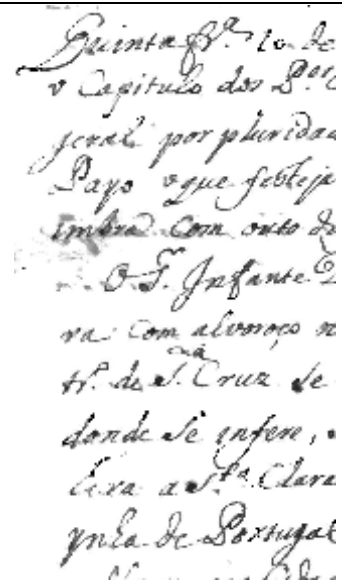 Quinta fr.ª 10 de
o Capitulo dos P.es
geral por plurida
Payo o que festeja
imbra com outo d
O S.r Infante D
ra com alvoroço n
tr.º de S.ta Cruz se
donde se infere,
leva a S.ta Clara
ynha de Portugal